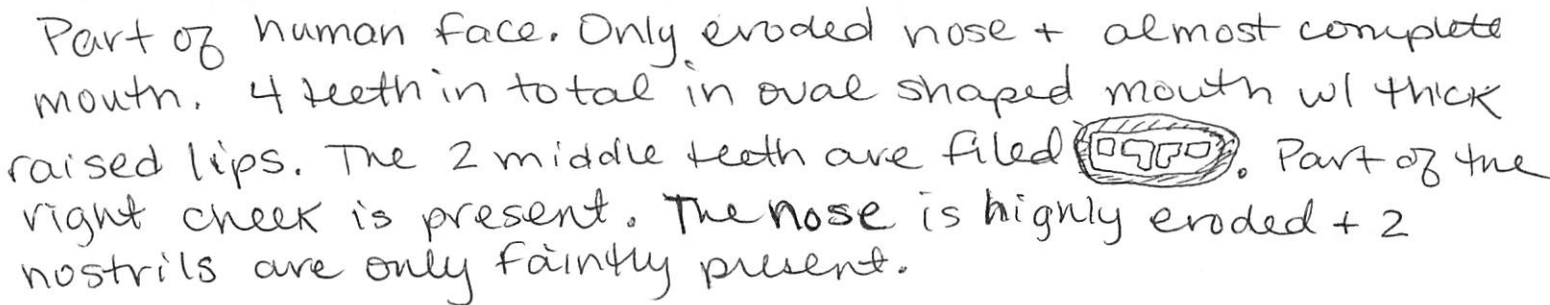 Part of human face. Only eroded nose + almost complete
mouth. 4 teeth in total in oval shaped mouth w/ thick
raised lips. The 2 middle teeth are filed. Part of the
right cheek is present. The nose is highly eroded + 2
nostrils are only faintly present.